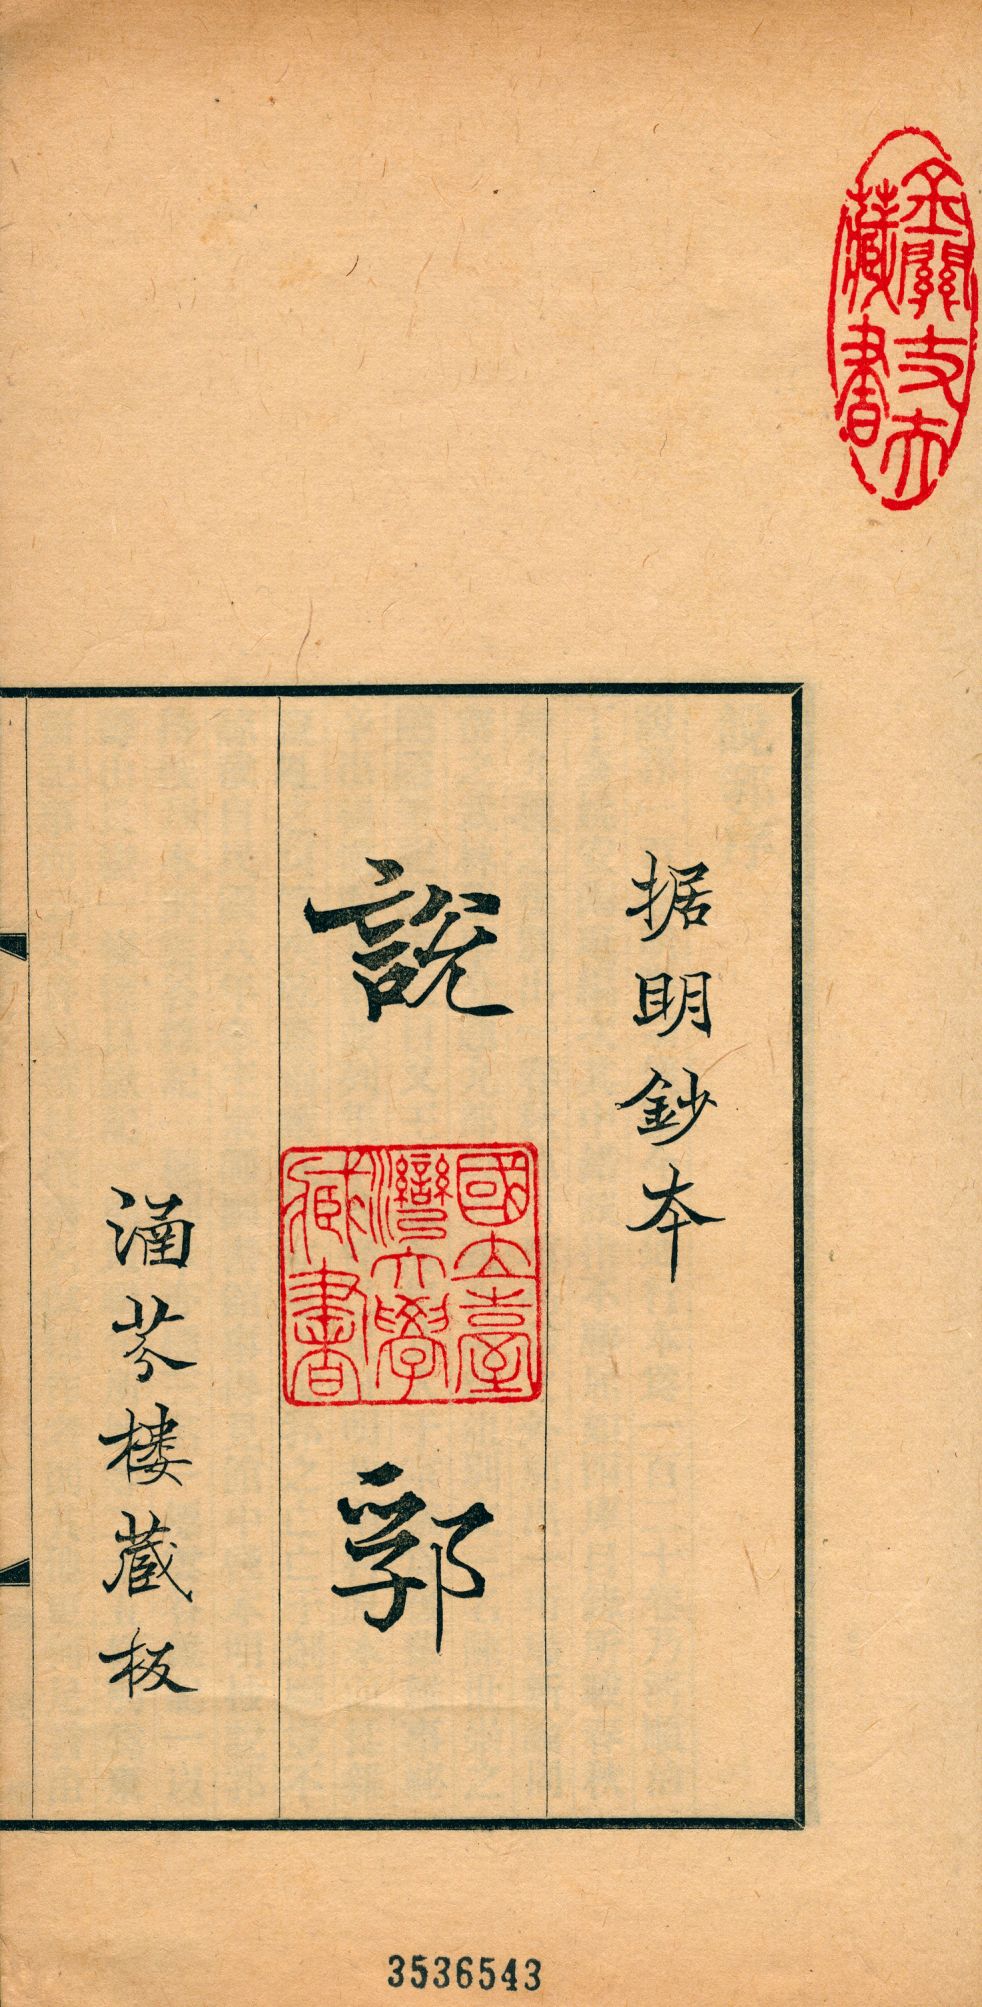 金關丈夫
藏書
据明鈔本
說郛
國立臺
灣大學
藏書
涵芬樓藏板
3536543